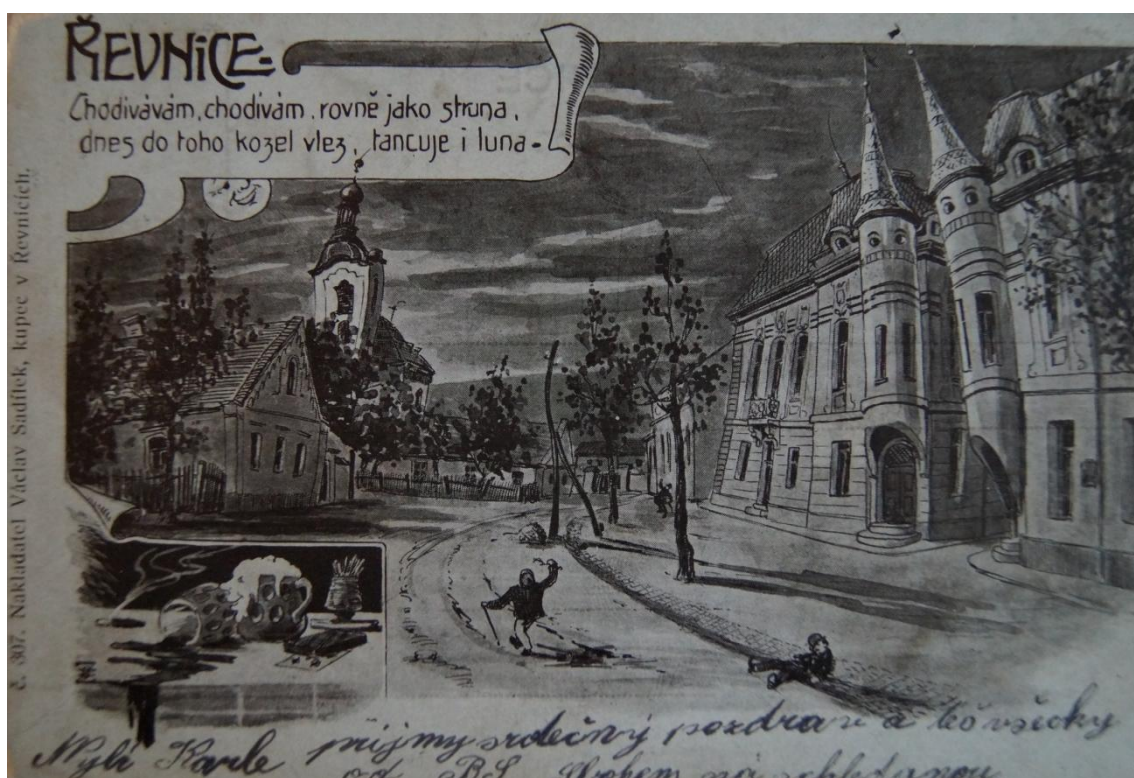 ŘEVNICE
Chodivávám, chodívám, rovně jako struna,
dnes do toho kozel vlez, tancuje i luna.
č. 307. Nakladatel Václav Sadílek, kupec v Řevnicích.
Mylí Karle přijmy srdečný pozdrav a těš všecky
od BS.